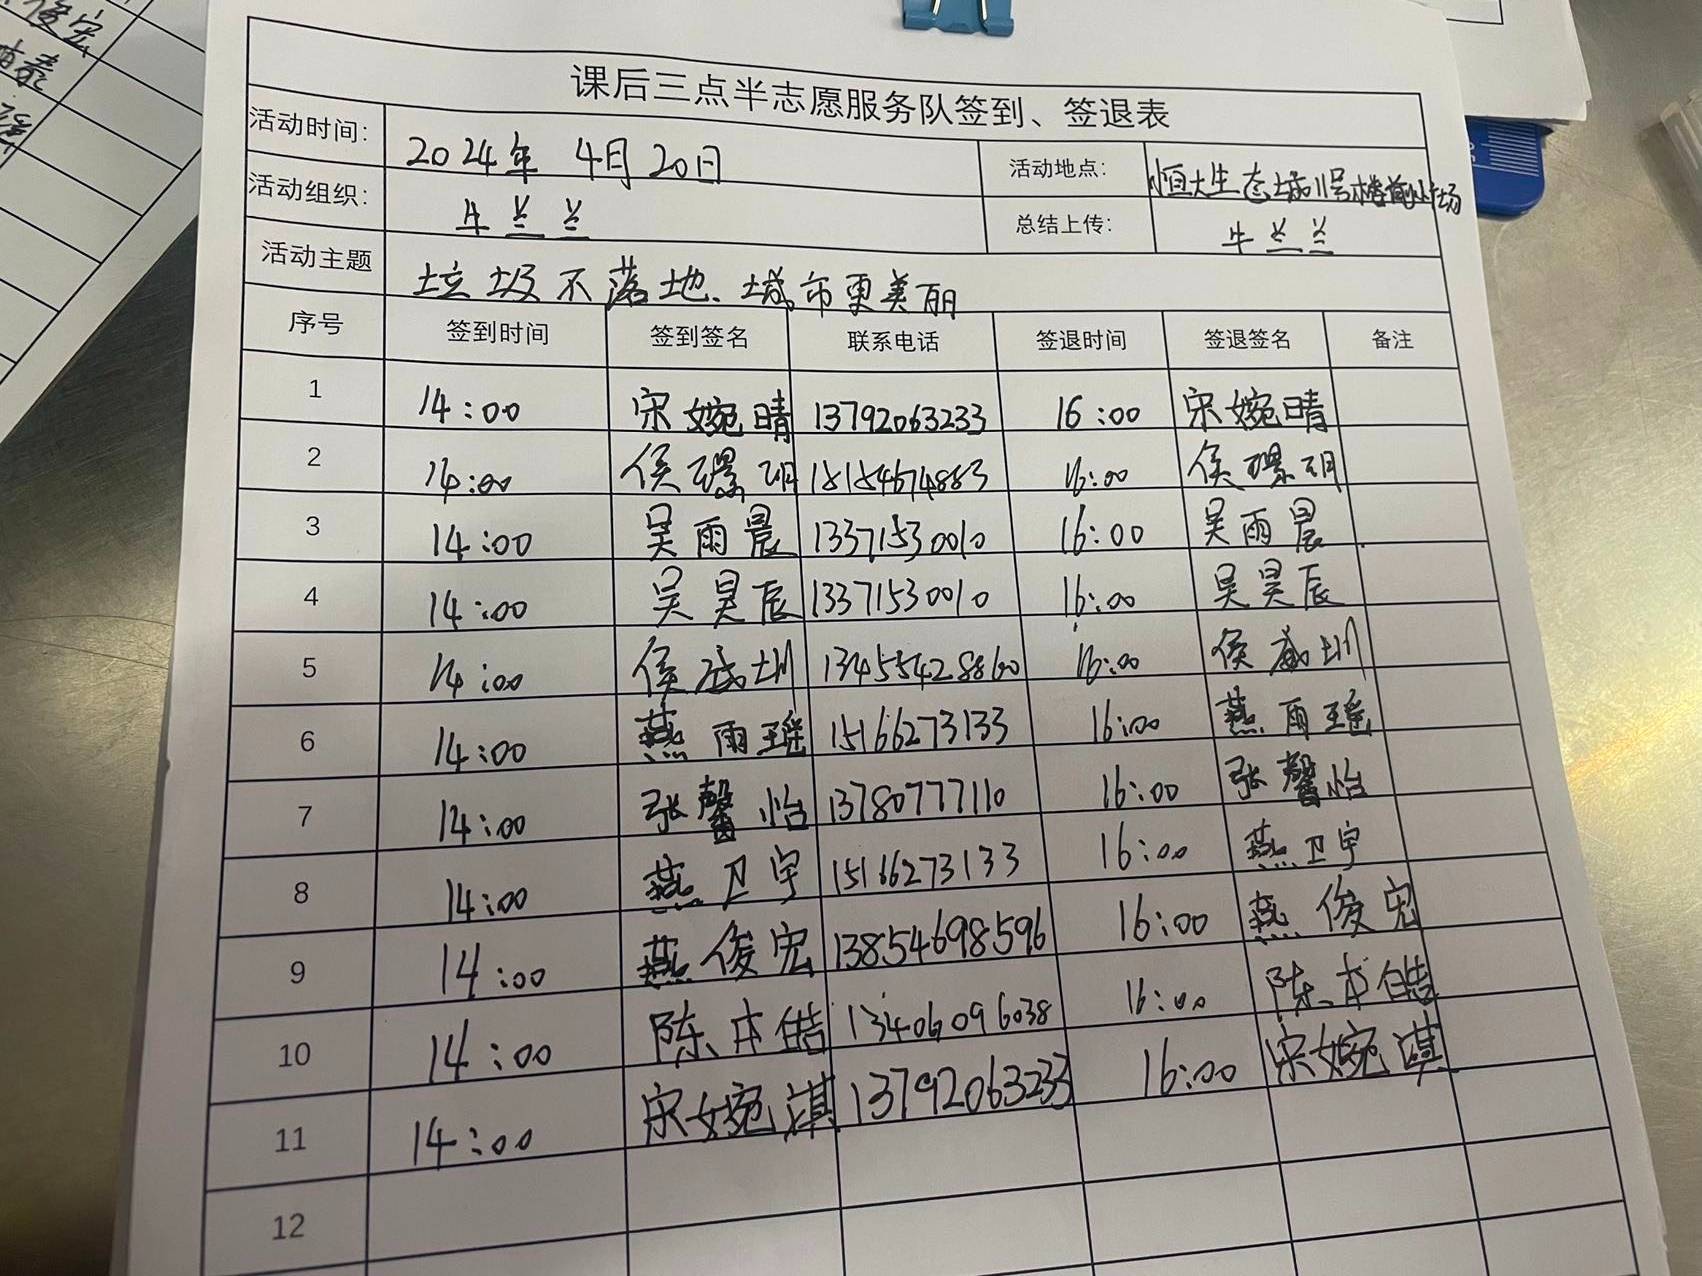 课后三点半志愿服务队签到、签退表
活动时间: 2024年 4月20日 活动地点: 恒大生态城11号楼前小广场
活动组织: 牛兰兰 总结上传: 牛兰兰
活动主题 垃圾不落地、城市更美丽
序号 签到时间 签到签名 联系电话 签退时间 签退签名 备注
1 14:00 宋婉晴 13792063233 16:00 宋婉晴
2 14:00 侯璟玥 15154674883 16:00 侯璟玥
3 14:00 吴雨晨 13371530010 16:00 吴雨晨
4 14:00 吴昊辰 13371530010 16:00 吴昊辰
5 14:00 侯 13455428860 16:00 侯
6 14:00 燕雨瑶 15166273133 16:00 燕雨瑶
7 14:00 张馨怡 13780777110 16:00 张馨怡
8 14:00 燕卫宇 15166273133 16:00 燕卫宇
9 14:00 燕俊宏 13854698596 16:00 燕俊宏
10 14:00 陈本皓 13406096038 16:00 陈本皓
11 14:00 宋婉淇 13792063233 16:00 宋婉淇
12